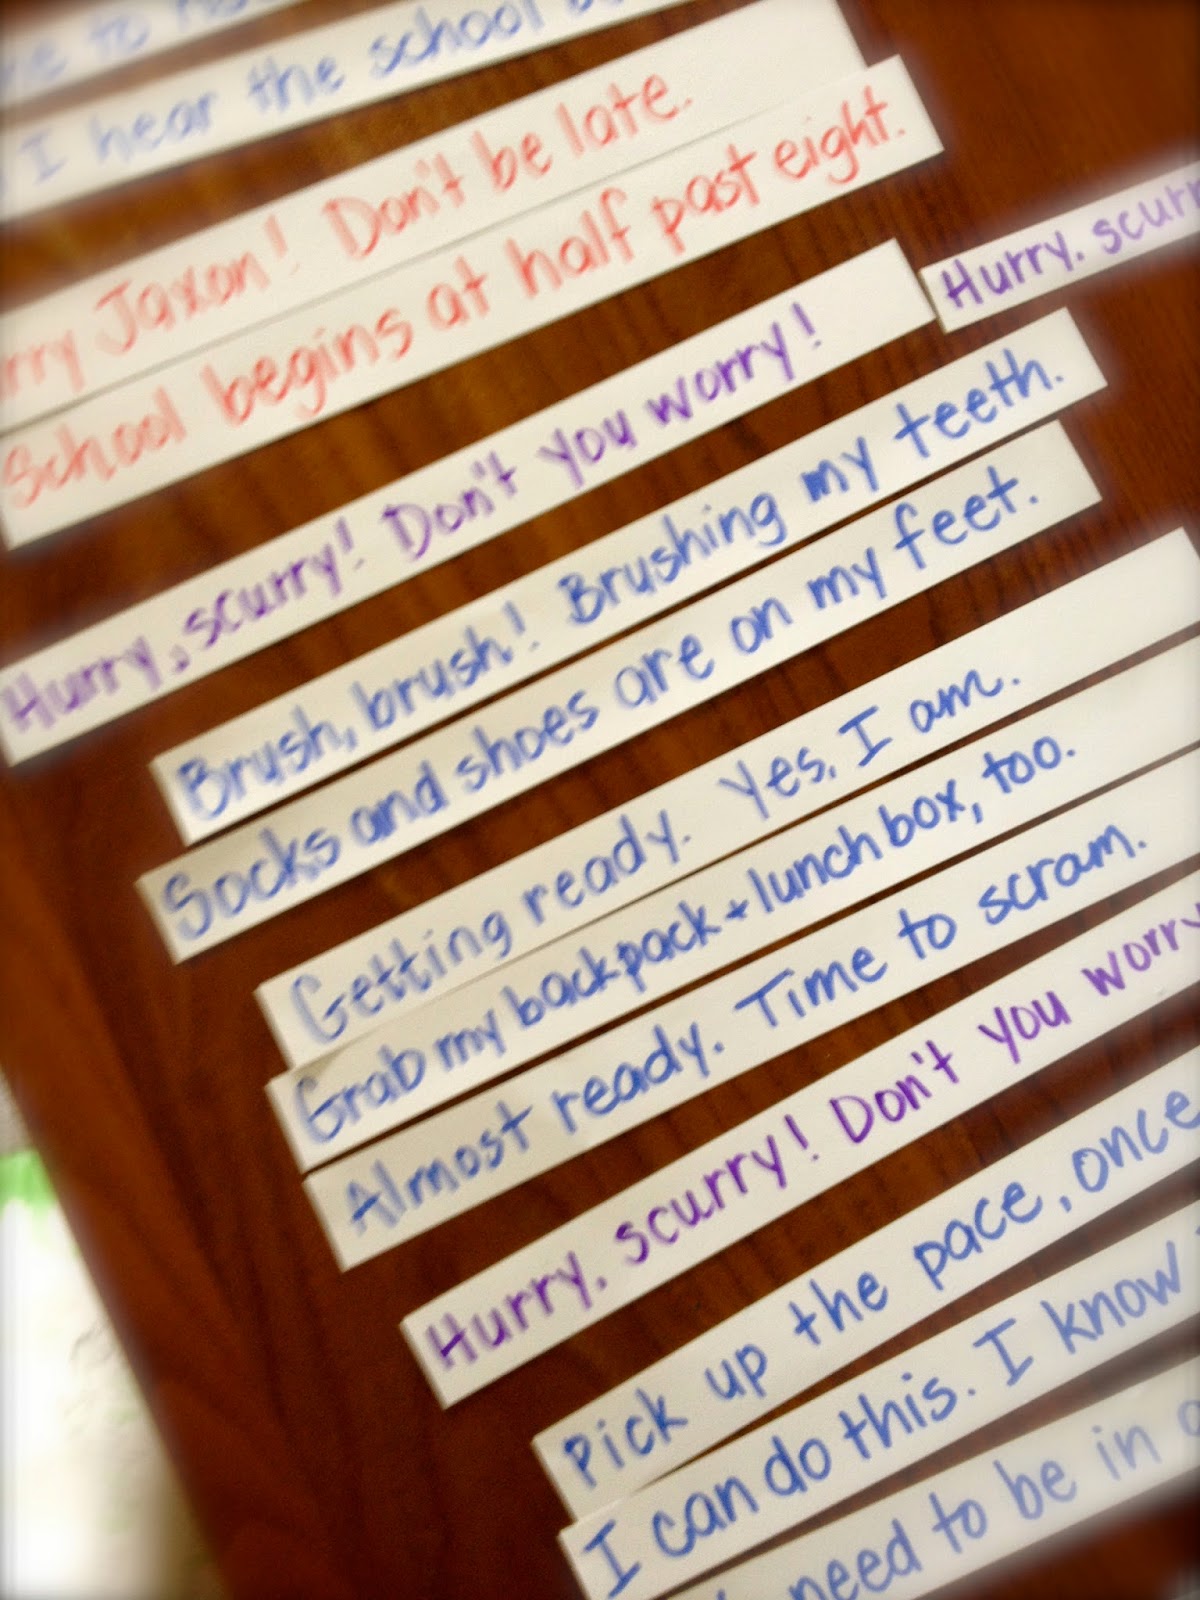 to
I hear the school
Jaxon! Don't be late.
School begins at half past eight.
Hurry, scurry! Don't you worry!
Hurry, 
Brush, brush! Brushing my teeth.
Socks and shoes are on my feet.
Getting ready. Yes, I am.
Grab my backpack + lunch box, too.
Almost ready. Time to scram.
Hurry, scurry! Don't you worry
Pick up the pace, once
I can do this. I know
need to be in